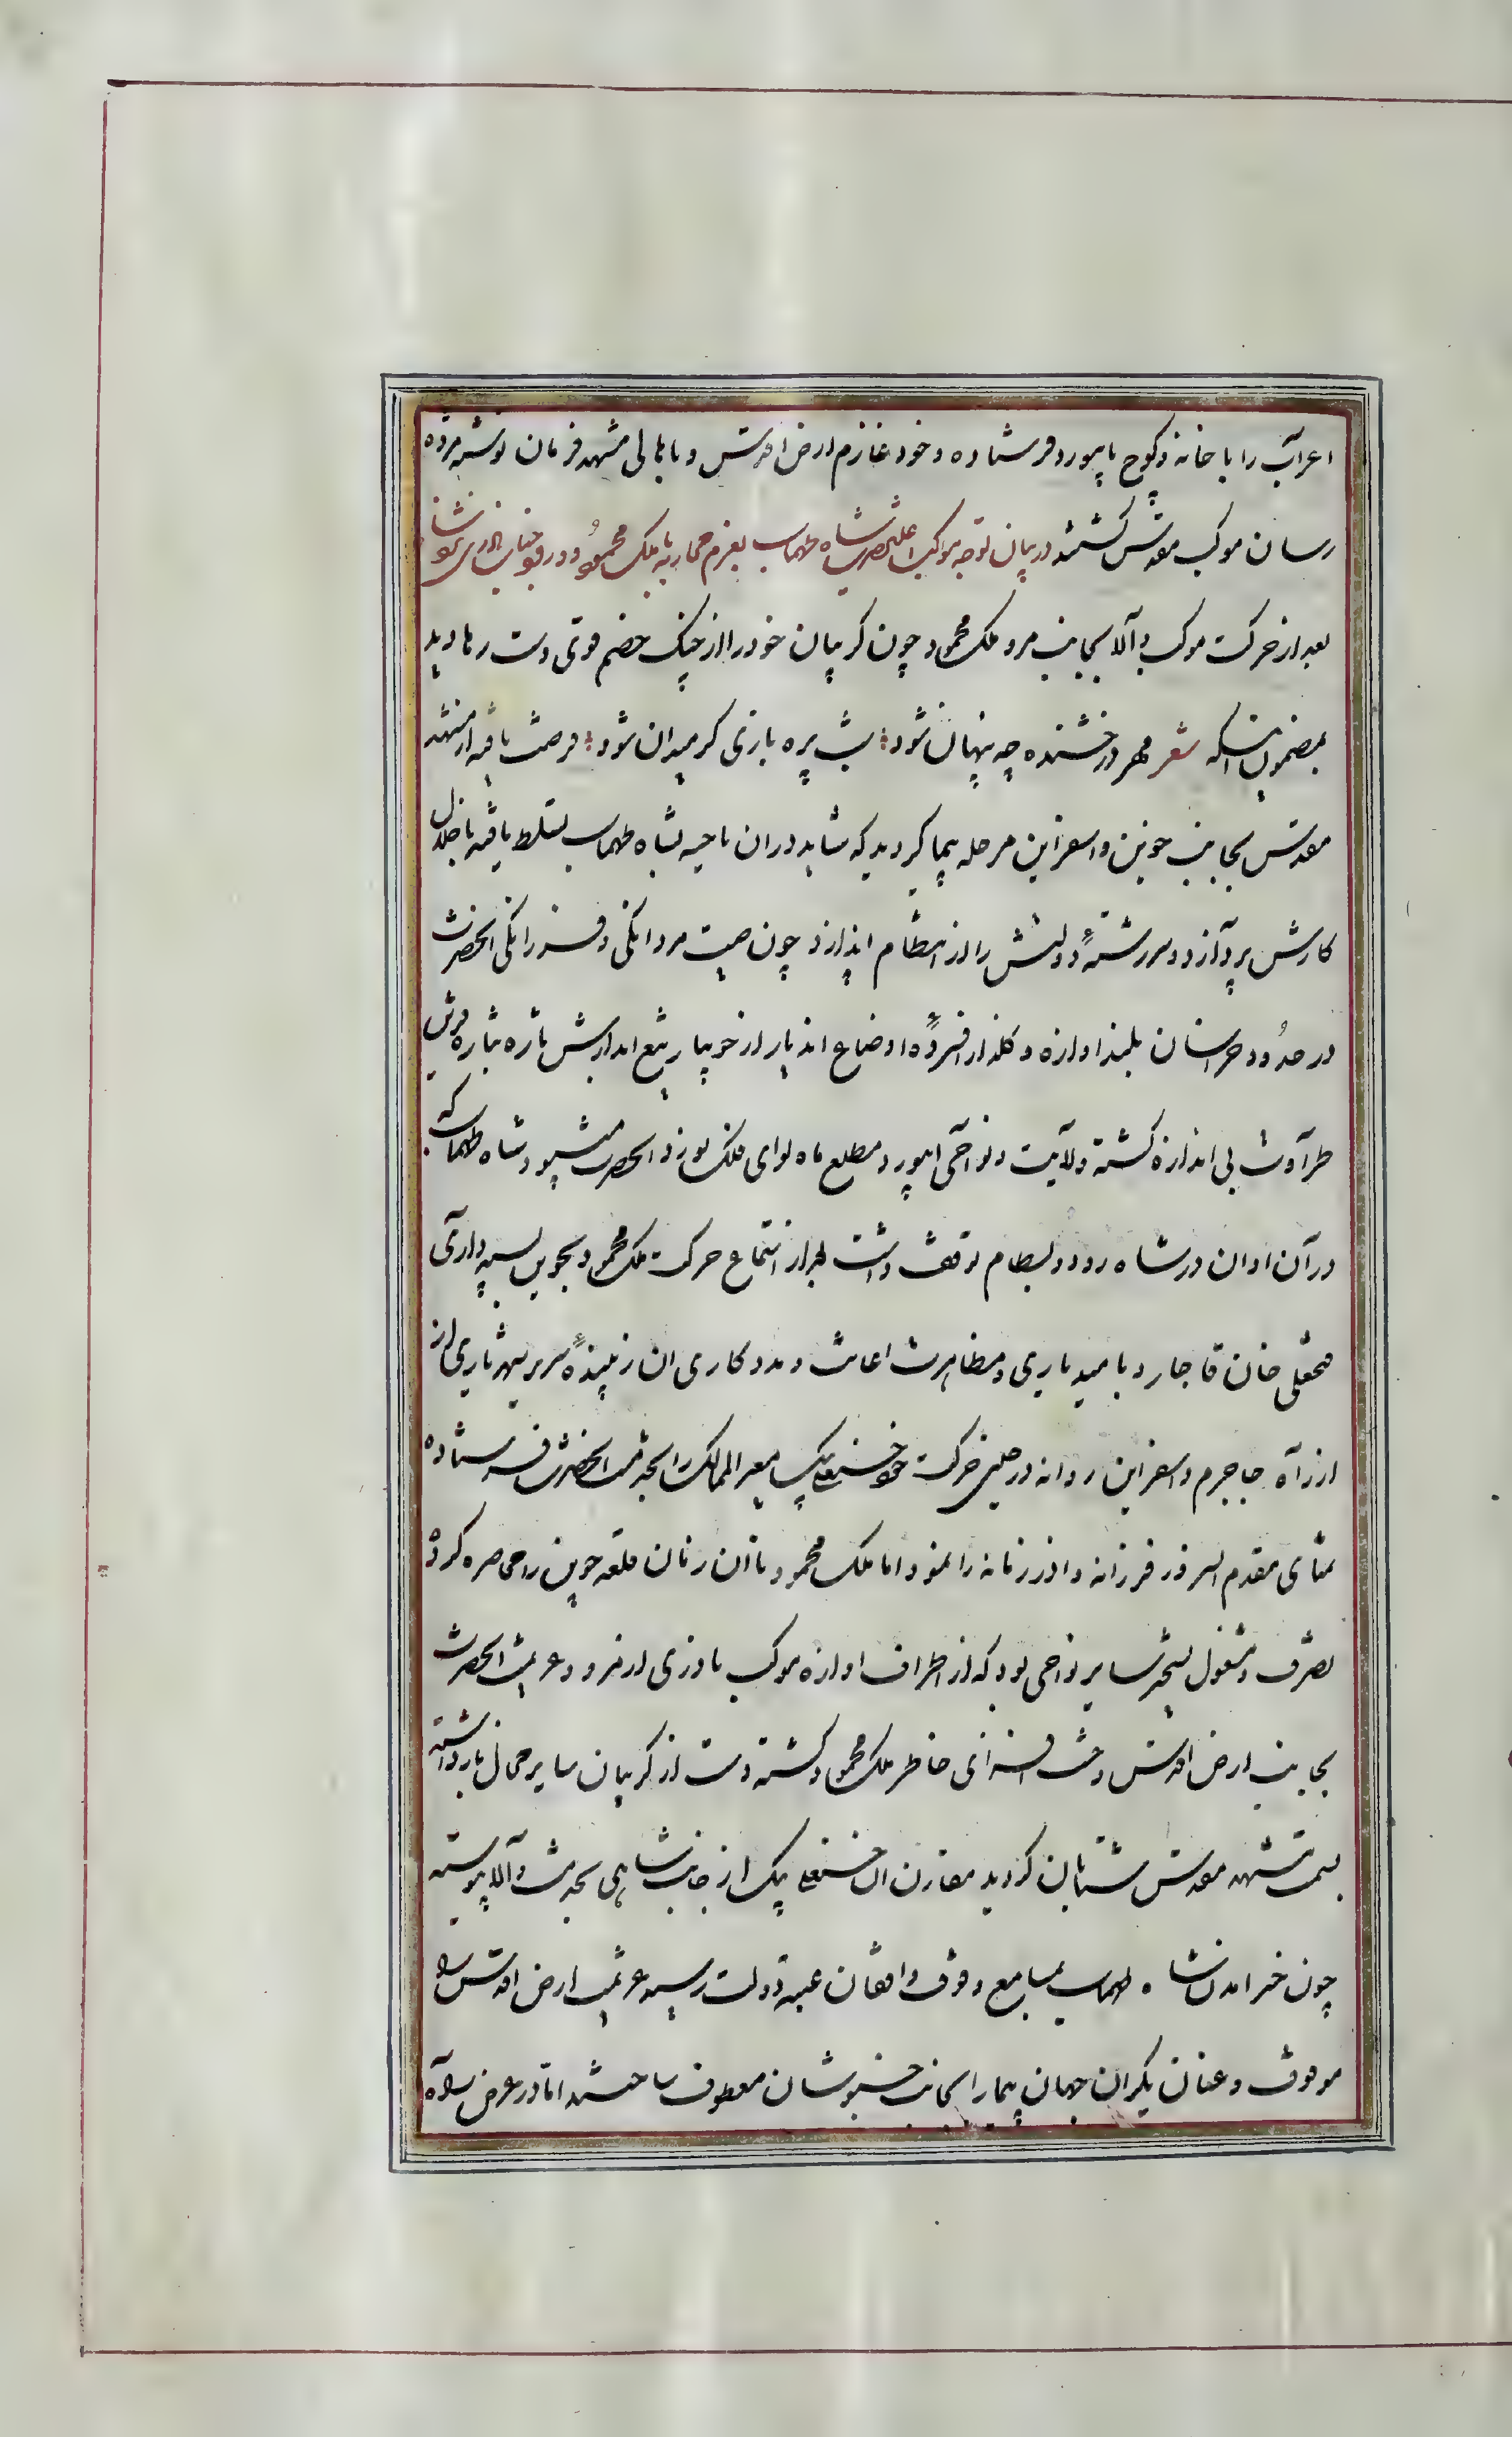 اعراب را با خانه و کوچ بابیورد فرستاده و خود عازم ارض اقدس و باهالی مشهد فرمان نوشته مژده
رسان موکب مقدس گشتند در بیان توجه موکب اعلیحضرت شاه طهماسب بعزم محاربه با ملک محمود و در
بعد از حرکت موکب والا بجانب مرو ملک محمود چون کریبان خود را از چنک خصم قوی دست رها دید
بمضمون اینکه شعر مهر درخشنده چه پنهان شود شب پره بازی کر میدان شود فرصت یافته از مشهد
مقدس بجانب جوین و اسفراین مرحله پیما کردید که شاید در ان ناحیه بشاه طهماسب تسلط یافته باخلال
کارش پردازد و سررشته دولتش را از انتظام اندازد چون صیت مردانکی و فرزانکی انحضرت
در حدود خراسان بلند اوازه و کلزار افسرده اوضاع اندیار از جویبار تیغ ابدارش تازه بتازه قرین
طراوت بی اندازه کشته ولایت و نواحی ابیورد مطلع ماه لوای فلک نورد انحضرت میبود شاه طهماسب که
در آن اوان در شاه رود و بسطام توقف داشت بعد از استماع حرکت ملک محمود بجوین بسپه داری
فتحعلی خان قاجار و بامید یاری و مظاهرت اعانت و مددکاری ان زیبنده سریر شهریاری از
از راه جاجرم و اسفراین روانه در حین حرکت خود حسنعلی بیک معیر الممالک را بخدمت انحضرت فرستاده
تمنای مقدم انسرور فرزانه و اندر زمانه را نمود اما ملک محمود تا ان زمان قلعه جوین را محاصره کرده
تصرف و مشغول تسخیر سایر نواحی بود که از اطراف اوازه موکب نادری از مرو و عزیمت انحضرت
بجانب ارض اقدس وحشت افزای خاطر ملک محمود کشته دست از کریبان سایر محال باز داشته
بسمت مشهد مقدس شتابان کردید مقارن ان حسنعلی بیک از جانب شاهی بخدمت والا پیوسته
چون خبر امدن شاه طهماسب بمسامع وقوف واقفان عتبه دولت رسید عزیمت ارض اقدس را
موقوف و عنان یکران جهان پیما را بجانب خبوشان معطوف ساختند اما در عرض راه